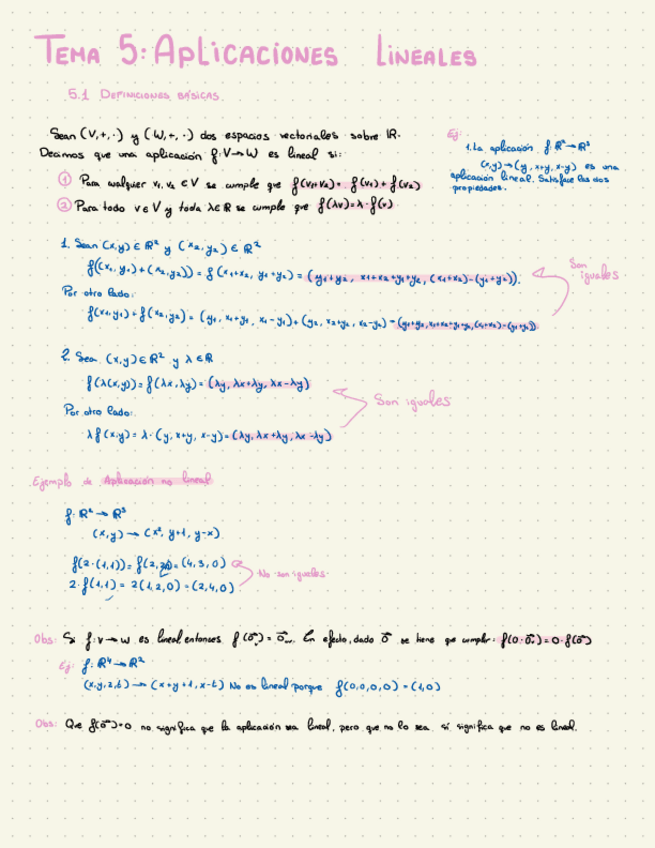 TEMA 5: APLICACIONES LINEALES
5.1 DEFINICIONES BÁSICAS.
Sean (V,+,·) y (W,+,·) dos espacios vectoriales sobre IR.
Decimos que una aplicación f: V→W es lineal si:
① Para cualquier v₁, v₂ ∈ V se cumple que f(v₁+v₂) = f(v₁) + f(v₂)
② Para todo v ∈ V y toda λ∈ℝ se cumple que f(λv)=λ·f(v)
Ej:
1. La aplicación f: ℝ²→ℝ³
(x,y)→(y, x+y, x-y) es una
aplicación lineal. Satisface las dos
propiedades.
1. Sean (x,y) ∈ ℝ² y (x₂,y₂) ∈ ℝ²
f((x₁,y₁)+(x₂,y₂)) = f(x₁+x₂, y₁+y₂) = (y₁+y₂, x₁+x₂+y₁+y₂, (x₁+x₂)-(y₁+y₂)).
Por otro lado:
f(x₁,y₁)+f(x₂,y₂) = (y₁, x₁+y₁, x₁-y₁)+(y₂, x₂+y₂, x₂-y₂) = (y₁+y₂, x₁+x₂+y₁+y₂, (x₁+x₂)-(y₁+y₂))
Son
iguales
2. Sea (x,y)∈ℝ² y λ∈ℝ
f(λ(x,y)) = f(λx, λy) = (λy, λx+λy, λx-λy)
Por otro lado:
λf(x,y) = λ·(y, x+y, x-y) = (λy, λx+λy, λx-λy)
Son iguales
Ejemplo de Aplicación no lineal
f: ℝ²→ℝ³
(x,y)→(x², y+1, y-x)
f(2·(1,1)) = f(2,2) = (4,3,0)
2·f(1,1) = 2(1,2,0) = (2,4,0)
No son iguales.
Obs: Si f: V→W es lineal entonces f(0⃗ᵥ) = 0⃗w. En efecto, dado 0⃗ se tiene que cumplir: f(0·0⃗ᵥ)=0·f(0⃗)
Ej: f: ℝ⁴→ℝ²
(x,y,z,t)→(x+y+1, x-t) No es lineal porque f(0,0,0,0) = (1,0)
Obs: Que f(0⃗)=0 no significa que la aplicación sea lineal, pero que no lo sea sí significa que no es lineal.